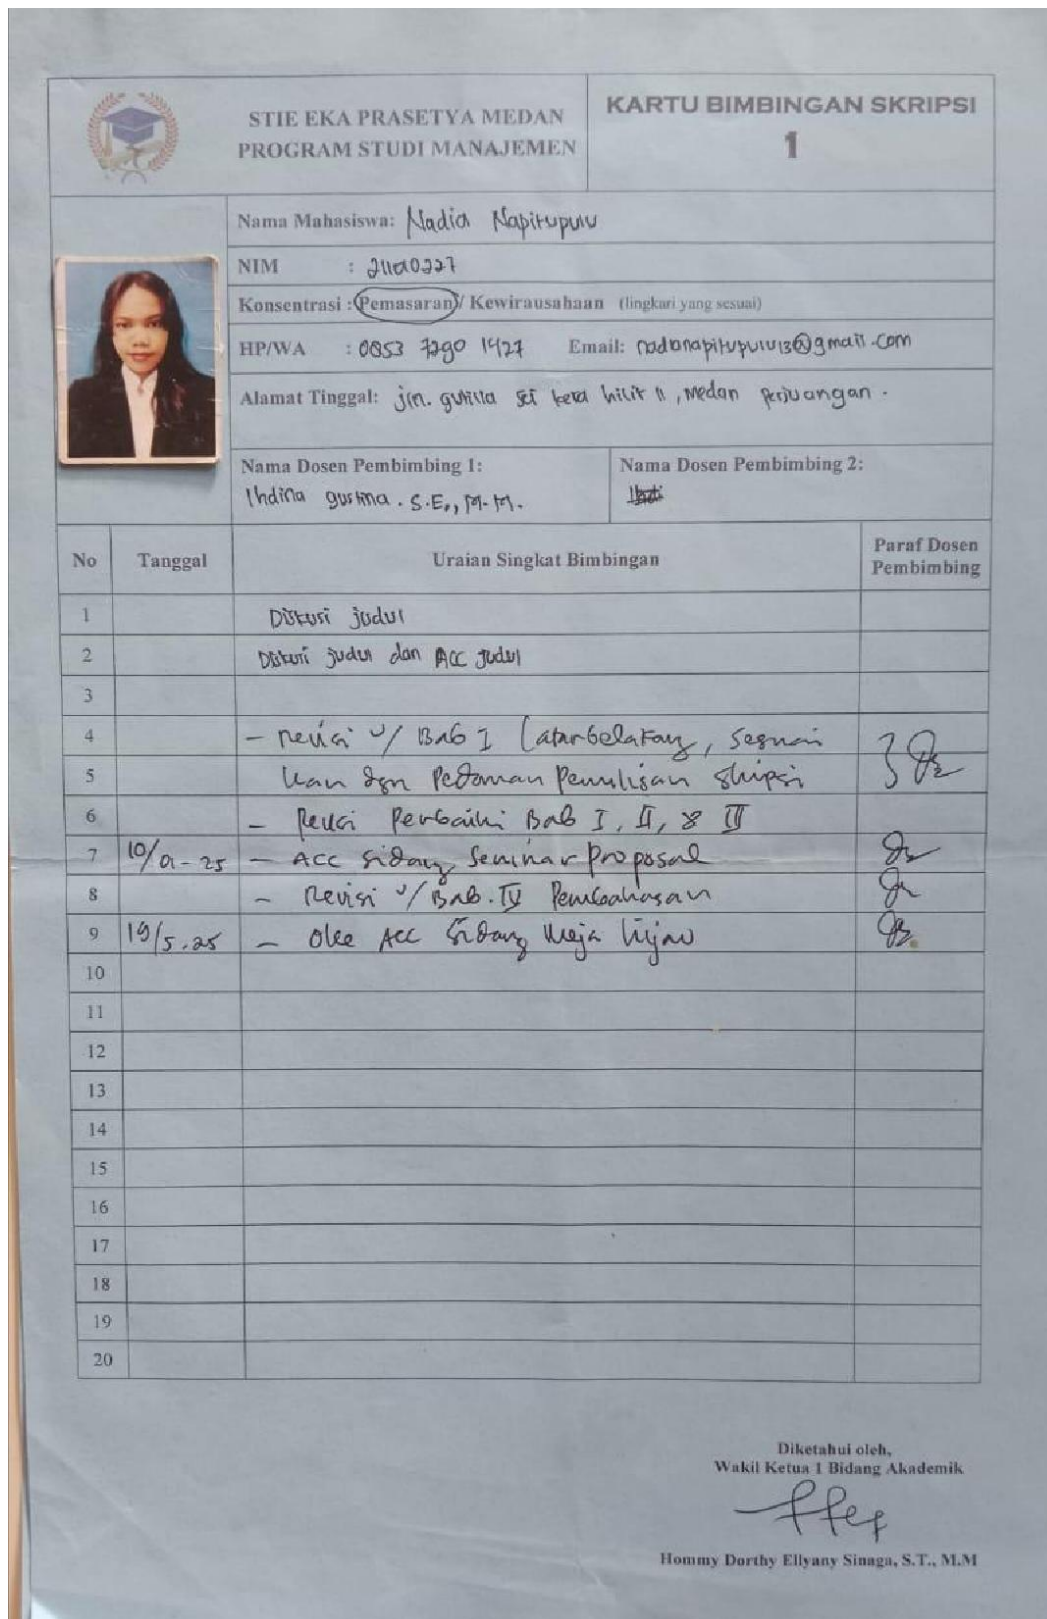 STIE EKA PRASETYA MEDAN
PROGRAM STUDI MANAJEMEN
KARTU BIMBINGAN SKRIPSI
1
Nama Mahasiswa: Nadia Napitupulu
NIM :
Konsentrasi : Pemasaran / Kewirausahaan (lingkari yang sesuai)
HP/WA : 0853 7290 1427 Email: nadianapitupulu13@gmail.com
Alamat Tinggal: jln. gurilla sei kera hilir II, Medan perjuangan.
Nama Dosen Pembimbing 1:
Ihdina gustina. S.E., M.M.
Nama Dosen Pembimbing 2:
No Tanggal Uraian Singkat Bimbingan Paraf Dosen Pembimbing
1 Diskusi judul
2 Diskusi judul dan ACC judul
3
4 - Revisi u/ Bab I Latarbelakang, Sesuai
5 kan dgn Pedoman Penulisan Skripsi
6 - Revisi Perbaiki Bab I, II, & III
7 10/01-25 - ACC Sidang Seminar Proposal
8 - Revisi u/ Bab. IV Pembahasan
9 19/5.25 - Oke ACC Sidang Meja hijau
10
11
12
13
14
15
16
17
18
19
20
Diketahui oleh,
Wakil Ketua 1 Bidang Akademik
Hommy Dorthy Ellyany Sinaga, S.T., M.M